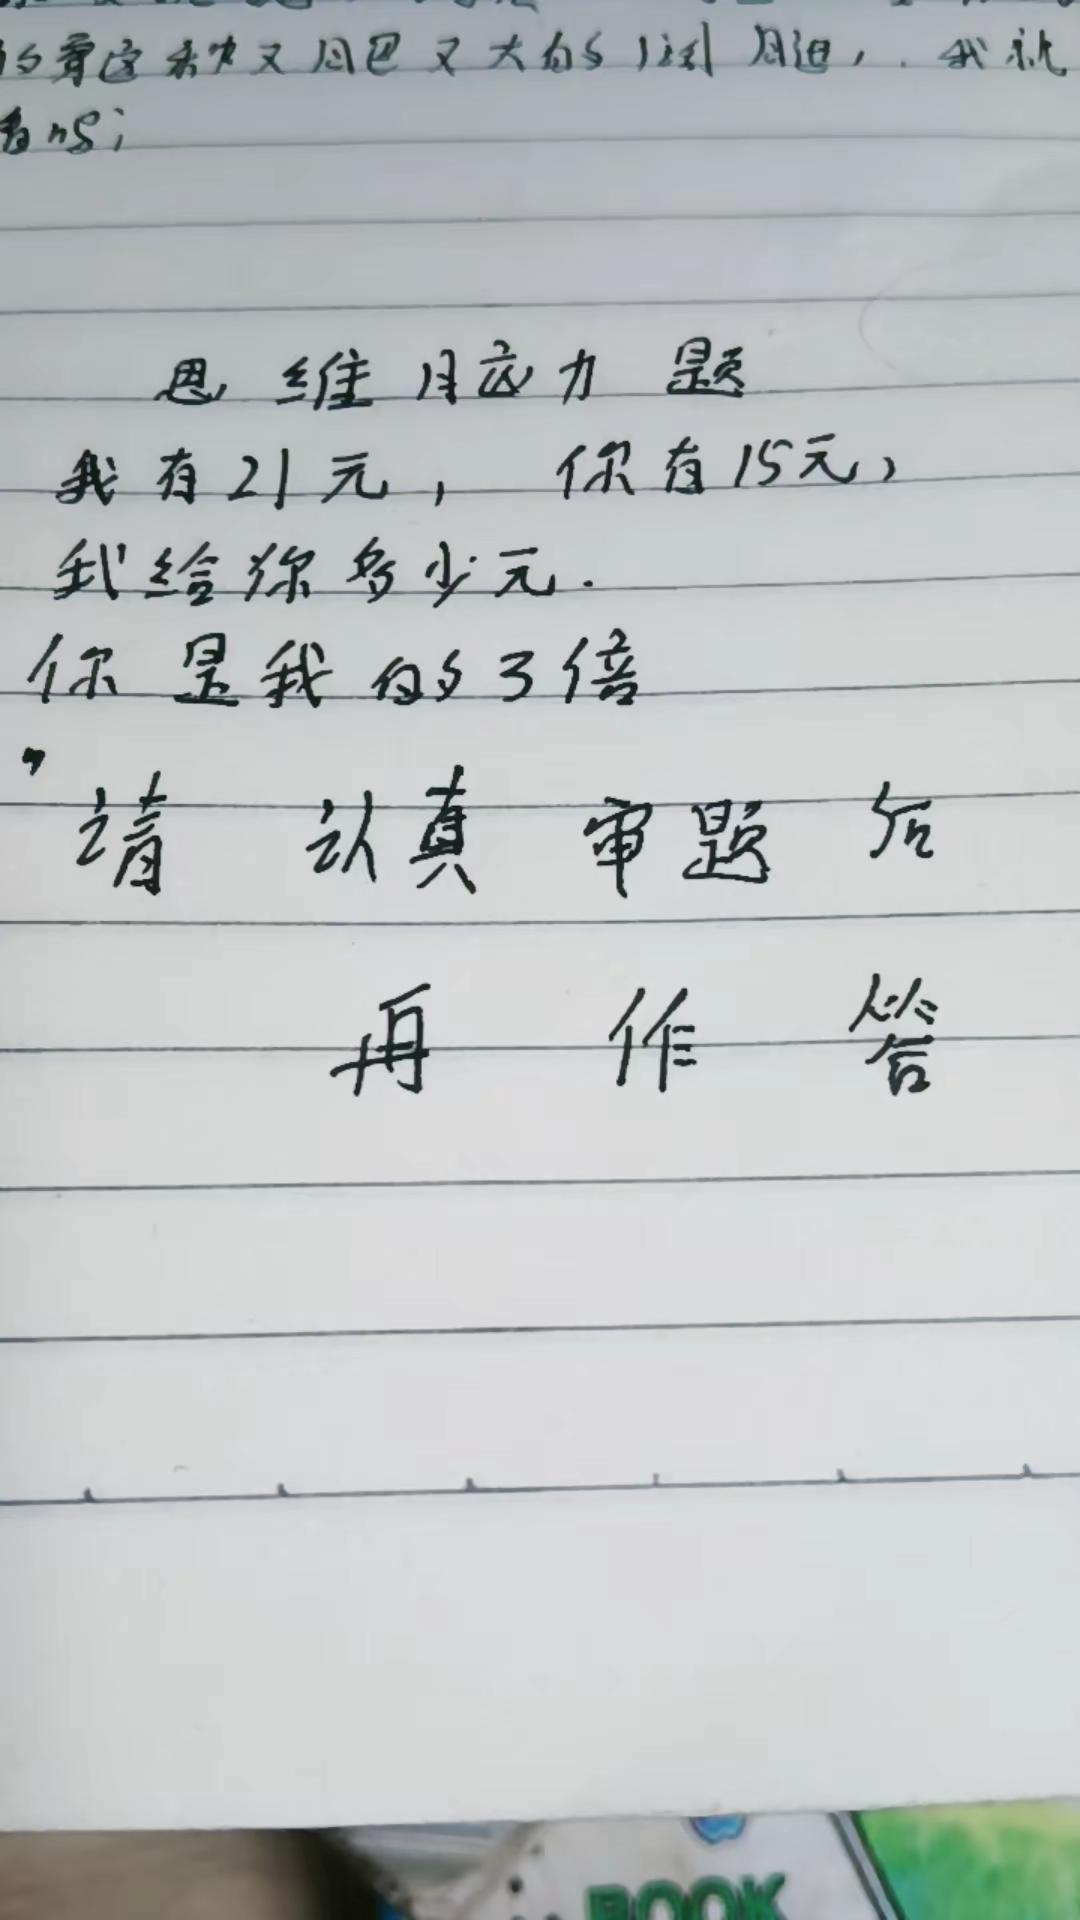 的看这种又肥又大的
我就
看吗；
思维脑力题
我有21元，你有15元，
我给你多少元.
你是我的3倍
"请认真审题后
再作答
BOOK